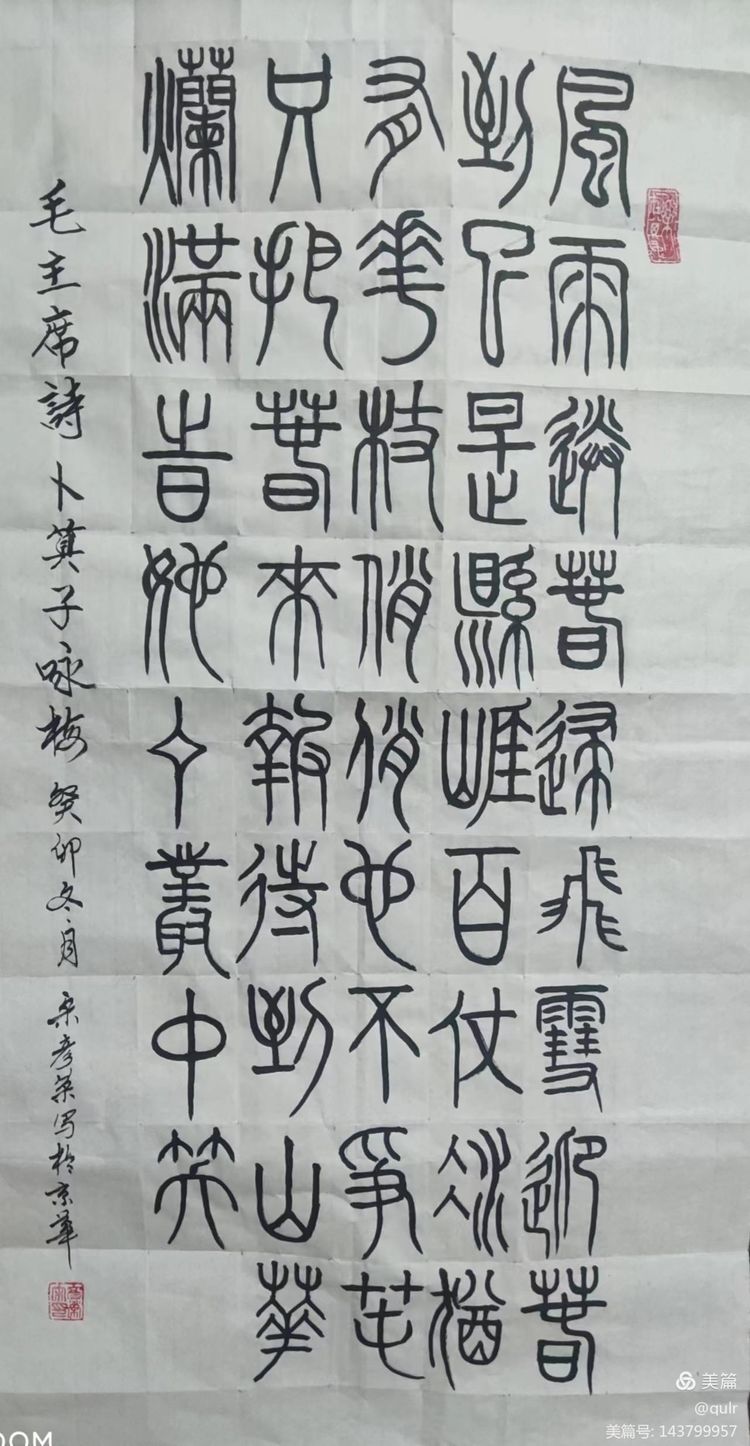 風雨送春歸飛雪迎春
到已是縣崖百仗冰猶
有花枝俏俏也不爭春
只把春來報待到山華
爛滿旹她在叢中笑
毛主席詩卜算子咏梅 癸卯冬月 彦荣写於京華
美篇
@qulr
美篇号: 143799957
OOM